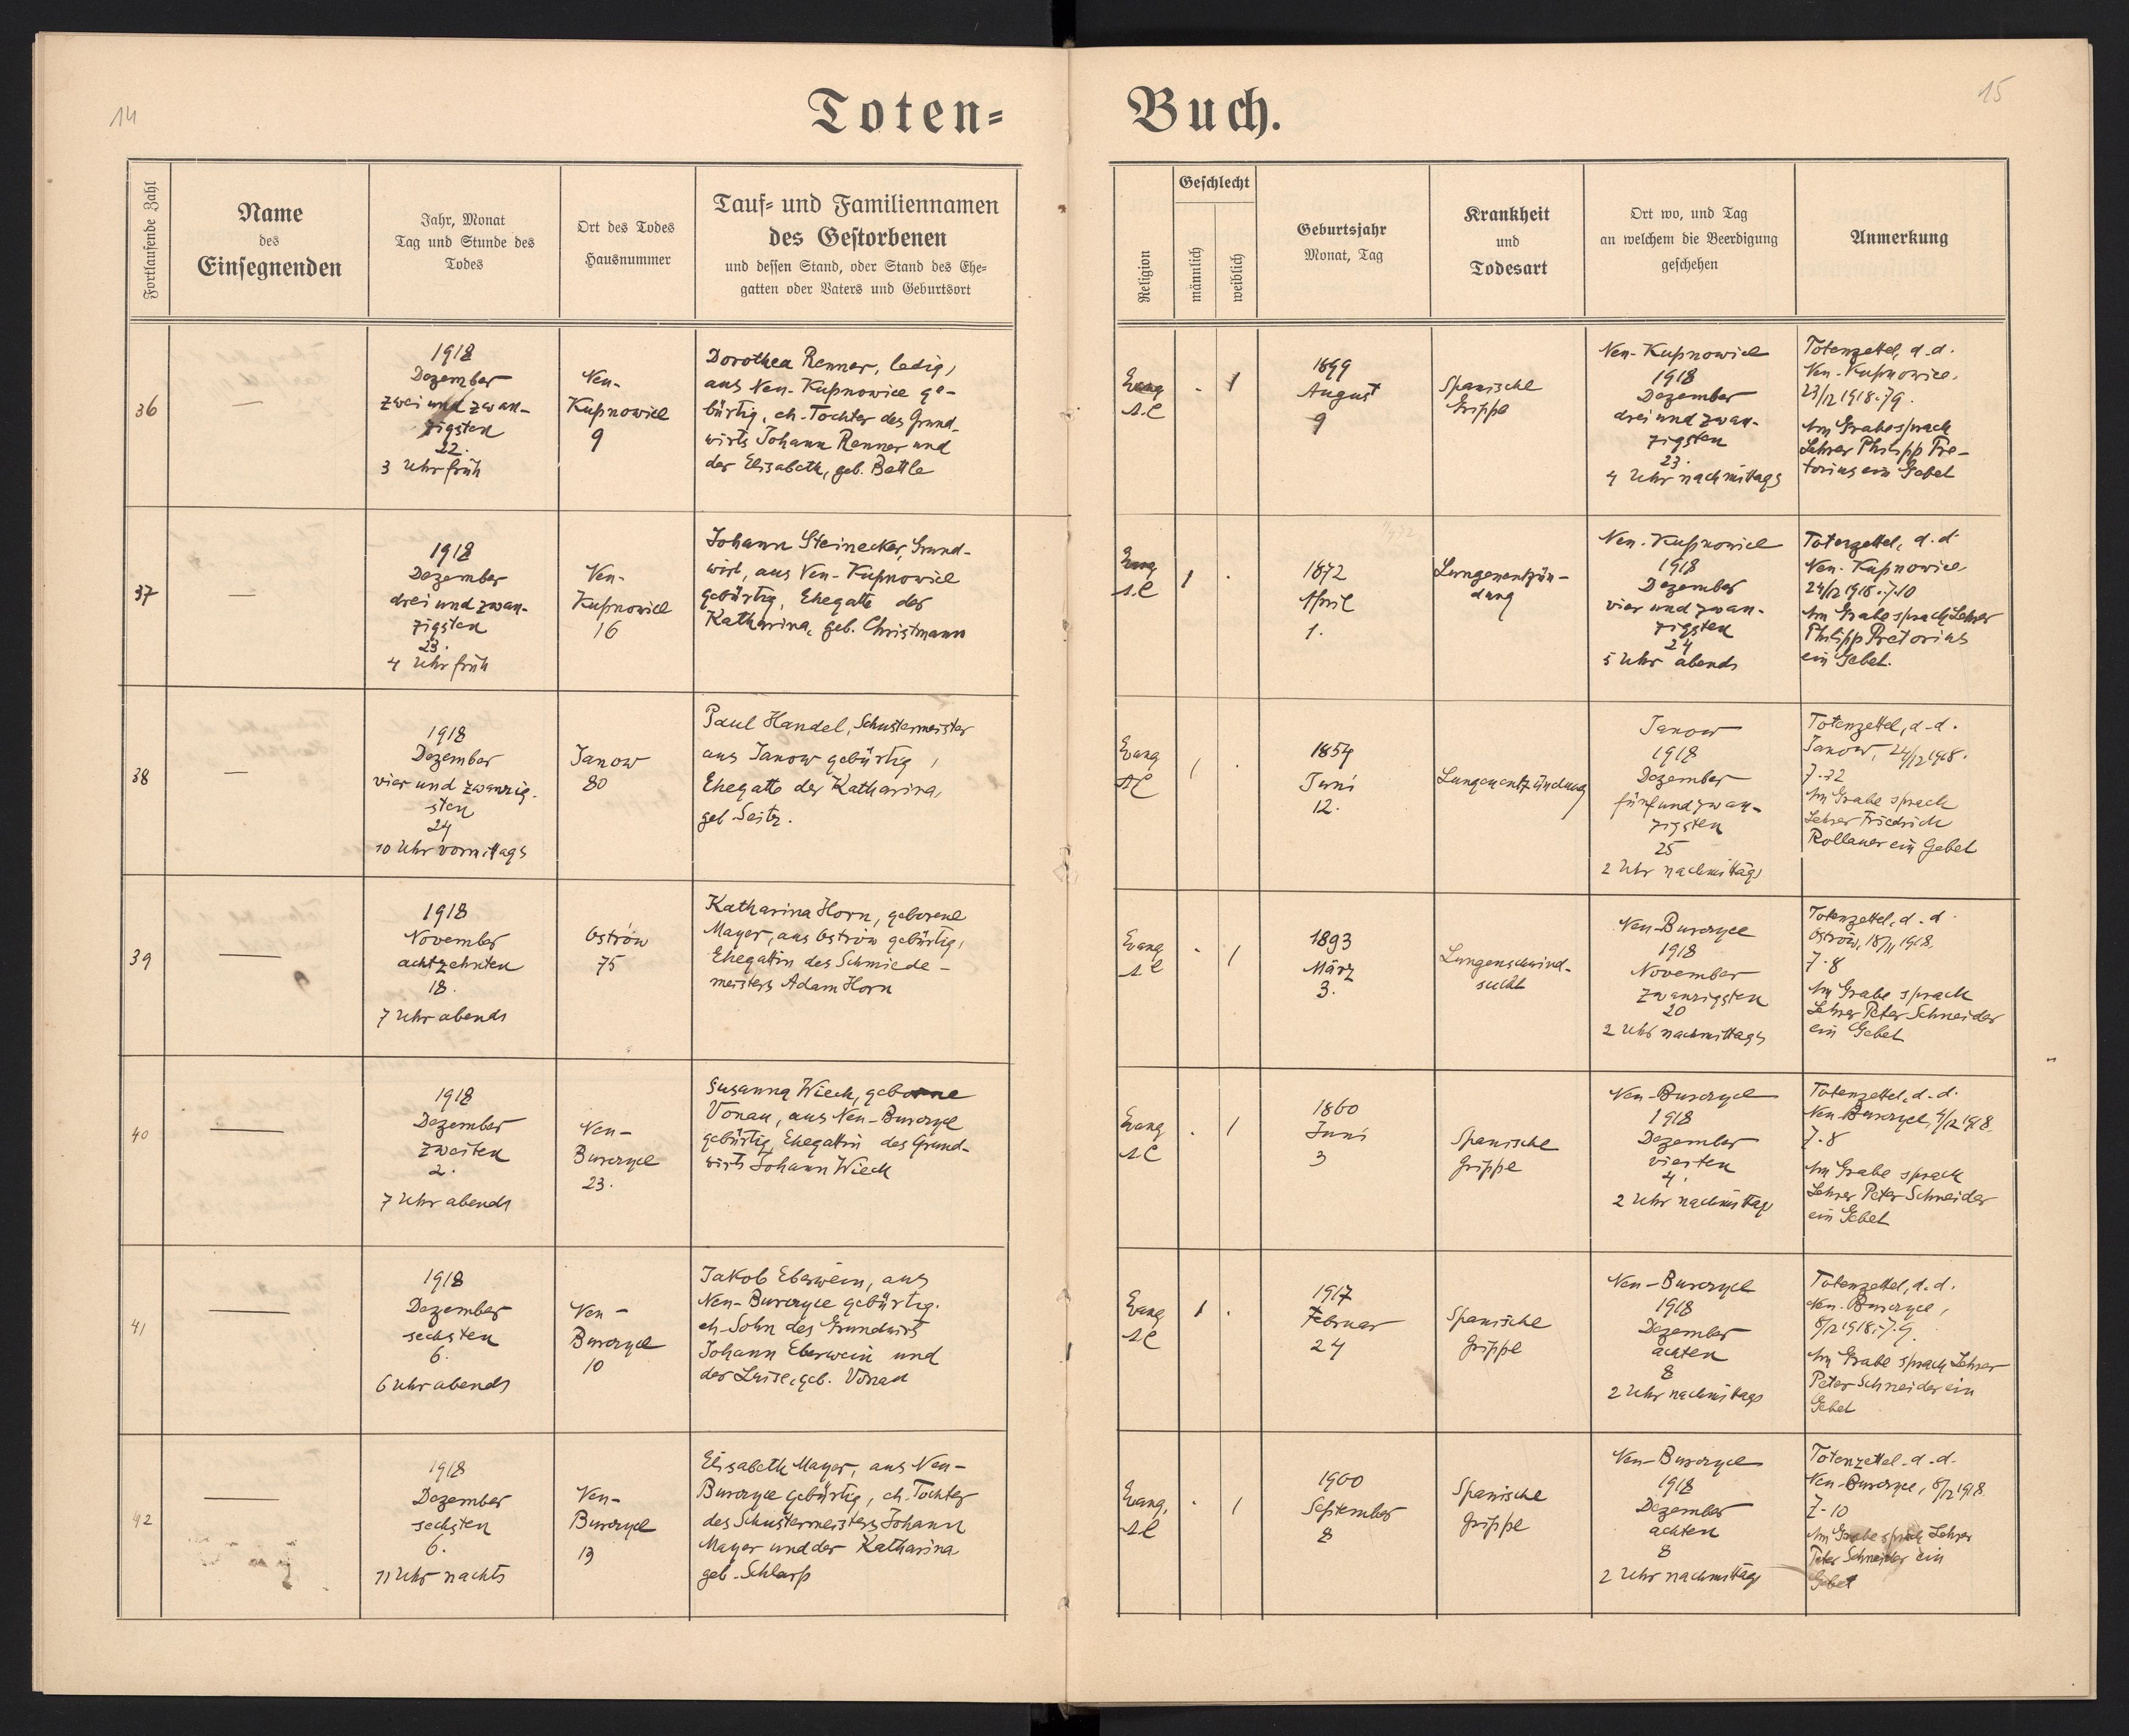 14
15
Toten-
Buch.
Fortlaufende Zahl
Name
des
Einsegnenden
Jahr, Monat
Tag und Stunde des
Todes
Ort des Todes
Hausnummer
Tauf- und Familiennamen
des Gestorbenen
und dessen Stand, oder Stand des Ehe-
gatten oder Vaters und Geburtsort
Religion
Geschlecht
männlich
weiblich
Geburtsjahr
Monat, Tag
Krankheit
und
Todesart
Ort wo, und Tag
an welchem die Beerdigung
geschehen
Anmerkung
36
—
1918
Dezember
zwei und zwan-
zigsten
22.
3 Uhr früh
Neu-
Kupnowice
9
Dorothea Renner, ledig,
aus Neu-Kupnowice ge-
bürtig, eh. Tochter des Grund-
wirts Johann Renner und
der Elisabeth, geb. Bettle
Evang
A.C
. 1
1899
August
9
Spanische
Grippe
Neu-Kupnowice
1918
Dezember
drei und zwan-
zigsten
23.
4 Uhr nachmittags
Totenzettel, d.d.
Neu-Kupnowice,
23/12 1918. 7 9.
Am Grabe sprach
Lehrer Philipp Pre-
torius ein Gebet
37
—
1918
Dezember
drei und zwan-
zigsten
23.
4 Uhr früh
Neu-
Kupnowice
16
Johann Steinecker, Grund-
wirt, aus Neu-Kupnowice
gebürtig, Ehegatte der
Katharina, geb. Christmann
Evang
A.C
1 .
1872
April
1.
Lungenentzün-
dung
Neu-Kupnowice
1918
Dezember
vier und zwan-
zigsten
24
5 Uhr abends
Totenzettel, d.d.
Neu-Kupnowice,
24/12 1918. 7.10
Am Grabe sprach Lehrer
Philipp Pretorius
ein Gebet.
38
—
1918
Dezember
vier und zwanzig-
sten
24
10 Uhr vormittags
Janow
80
Paul Handel, Schustermeister
aus Janow gebürtig,
Ehegatte der Katharina,
geb. Seitz.
Evang
AC
1 .
1854
Juni
12.
Lungenentzündung
Janow
1918
Dezember
fünf und zwan-
zigsten
25
2 Uhr nachmittags
Totenzettel, d.d.
Janow, 24/12 1918.
7.72
Am Grabe sprach
Lehrer Friedrich
Rollauer ein Gebet
39
—
1918
November
achtzehnten
18.
7 Uhr abends
Ostrów
75
Katharina Horn, geborene
Mayer, aus Ostrów gebürtig,
Ehegattin des Schmiede-
meisters Adam Horn
Evang
AC
. 1
1893
März
3.
Lungenschwind-
sucht
Neu-Burczyce
1918
November
zwanzigsten
20
2 Uhr nachmittags
Totenzettel, d.d.
Ostrów, 18/11 1918.
7.8
Am Grabe sprach
Lehrer Peter Schneider
ein Gebet
40
—
1918
Dezember
zweiten
2.
7 Uhr abends
Neu-
Burczyce
23.
Susanna Wiech, geborne
Vonau, aus Neu-Burczyce
gebürtig, Ehegattin des Grund-
wirts Johann Wiech
Evang
AC
. 1
1860
Juni
3
Spanische
Grippe
Neu-Burczyce
1918
Dezember
vierten
4.
2 Uhr nachmittags
Totenzettel, d.d.
Neu-Burczyce, 4/12 1918.
7.8
Am Grabe sprach
Lehrer Peter Schneider
ein Gebet
41
—
1918
Dezember
sechsten
6.
6 Uhr abends
Neu-
Burczyce
10
Jakob Eberwein, aus
Neu-Burczyce gebürtig.
eh. Sohn des Grundwirts
Johann Eberwein und
der Luise, geb. Vonau
Evang
AC
1 .
1917
Februar
24
Spanische
Grippe
Neu-Burczyce
1918
Dezember
achten
8
2 Uhr nachmittags
Totenzettel, d.d.
Neu-Burczyce,
8/12 1918. 7.9.
Am Grabe sprach Lehrer
Peter Schneider ein
Gebet
42
—
1918
Dezember
sechsten
6.
11 Uhr nachts
Neu-
Burczyce
13
Elisabeth Mayer, aus Neu-
Burczyce gebürtig, eh. Tochter
des Schustermeisters Johann
Mayer und der Katharina
geb. Schlarp
Evang.
AC
. 1
1900
September
8
Spanische
Grippe
Neu-Burczyce
1918
Dezember
achten
8
2 Uhr nachmittags
Totenzettel, d.d.
Neu-Burczyce, 8/12 1918.
7-10
Am Grabe sprach Lehrer
Peter Schneider ein
Gebet